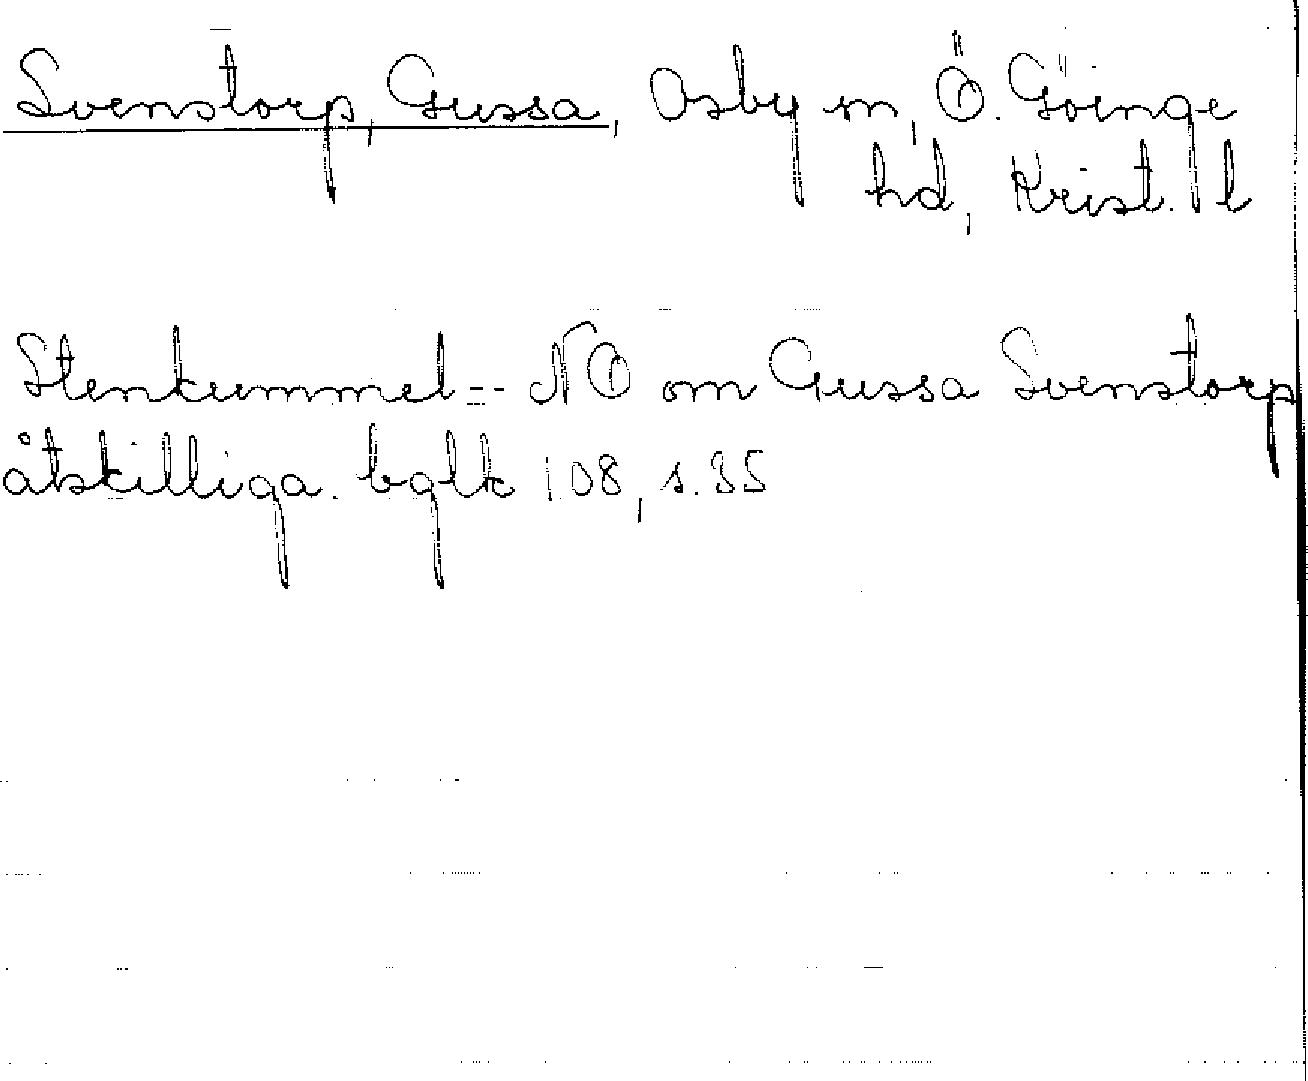 Svenstorp, Gussa, Osby sn, Ö. Göinge
hd, Krist. l
Stenkummel -- NO om Gussa Svenstorp
åtskilliga. bglk 108, s. 35